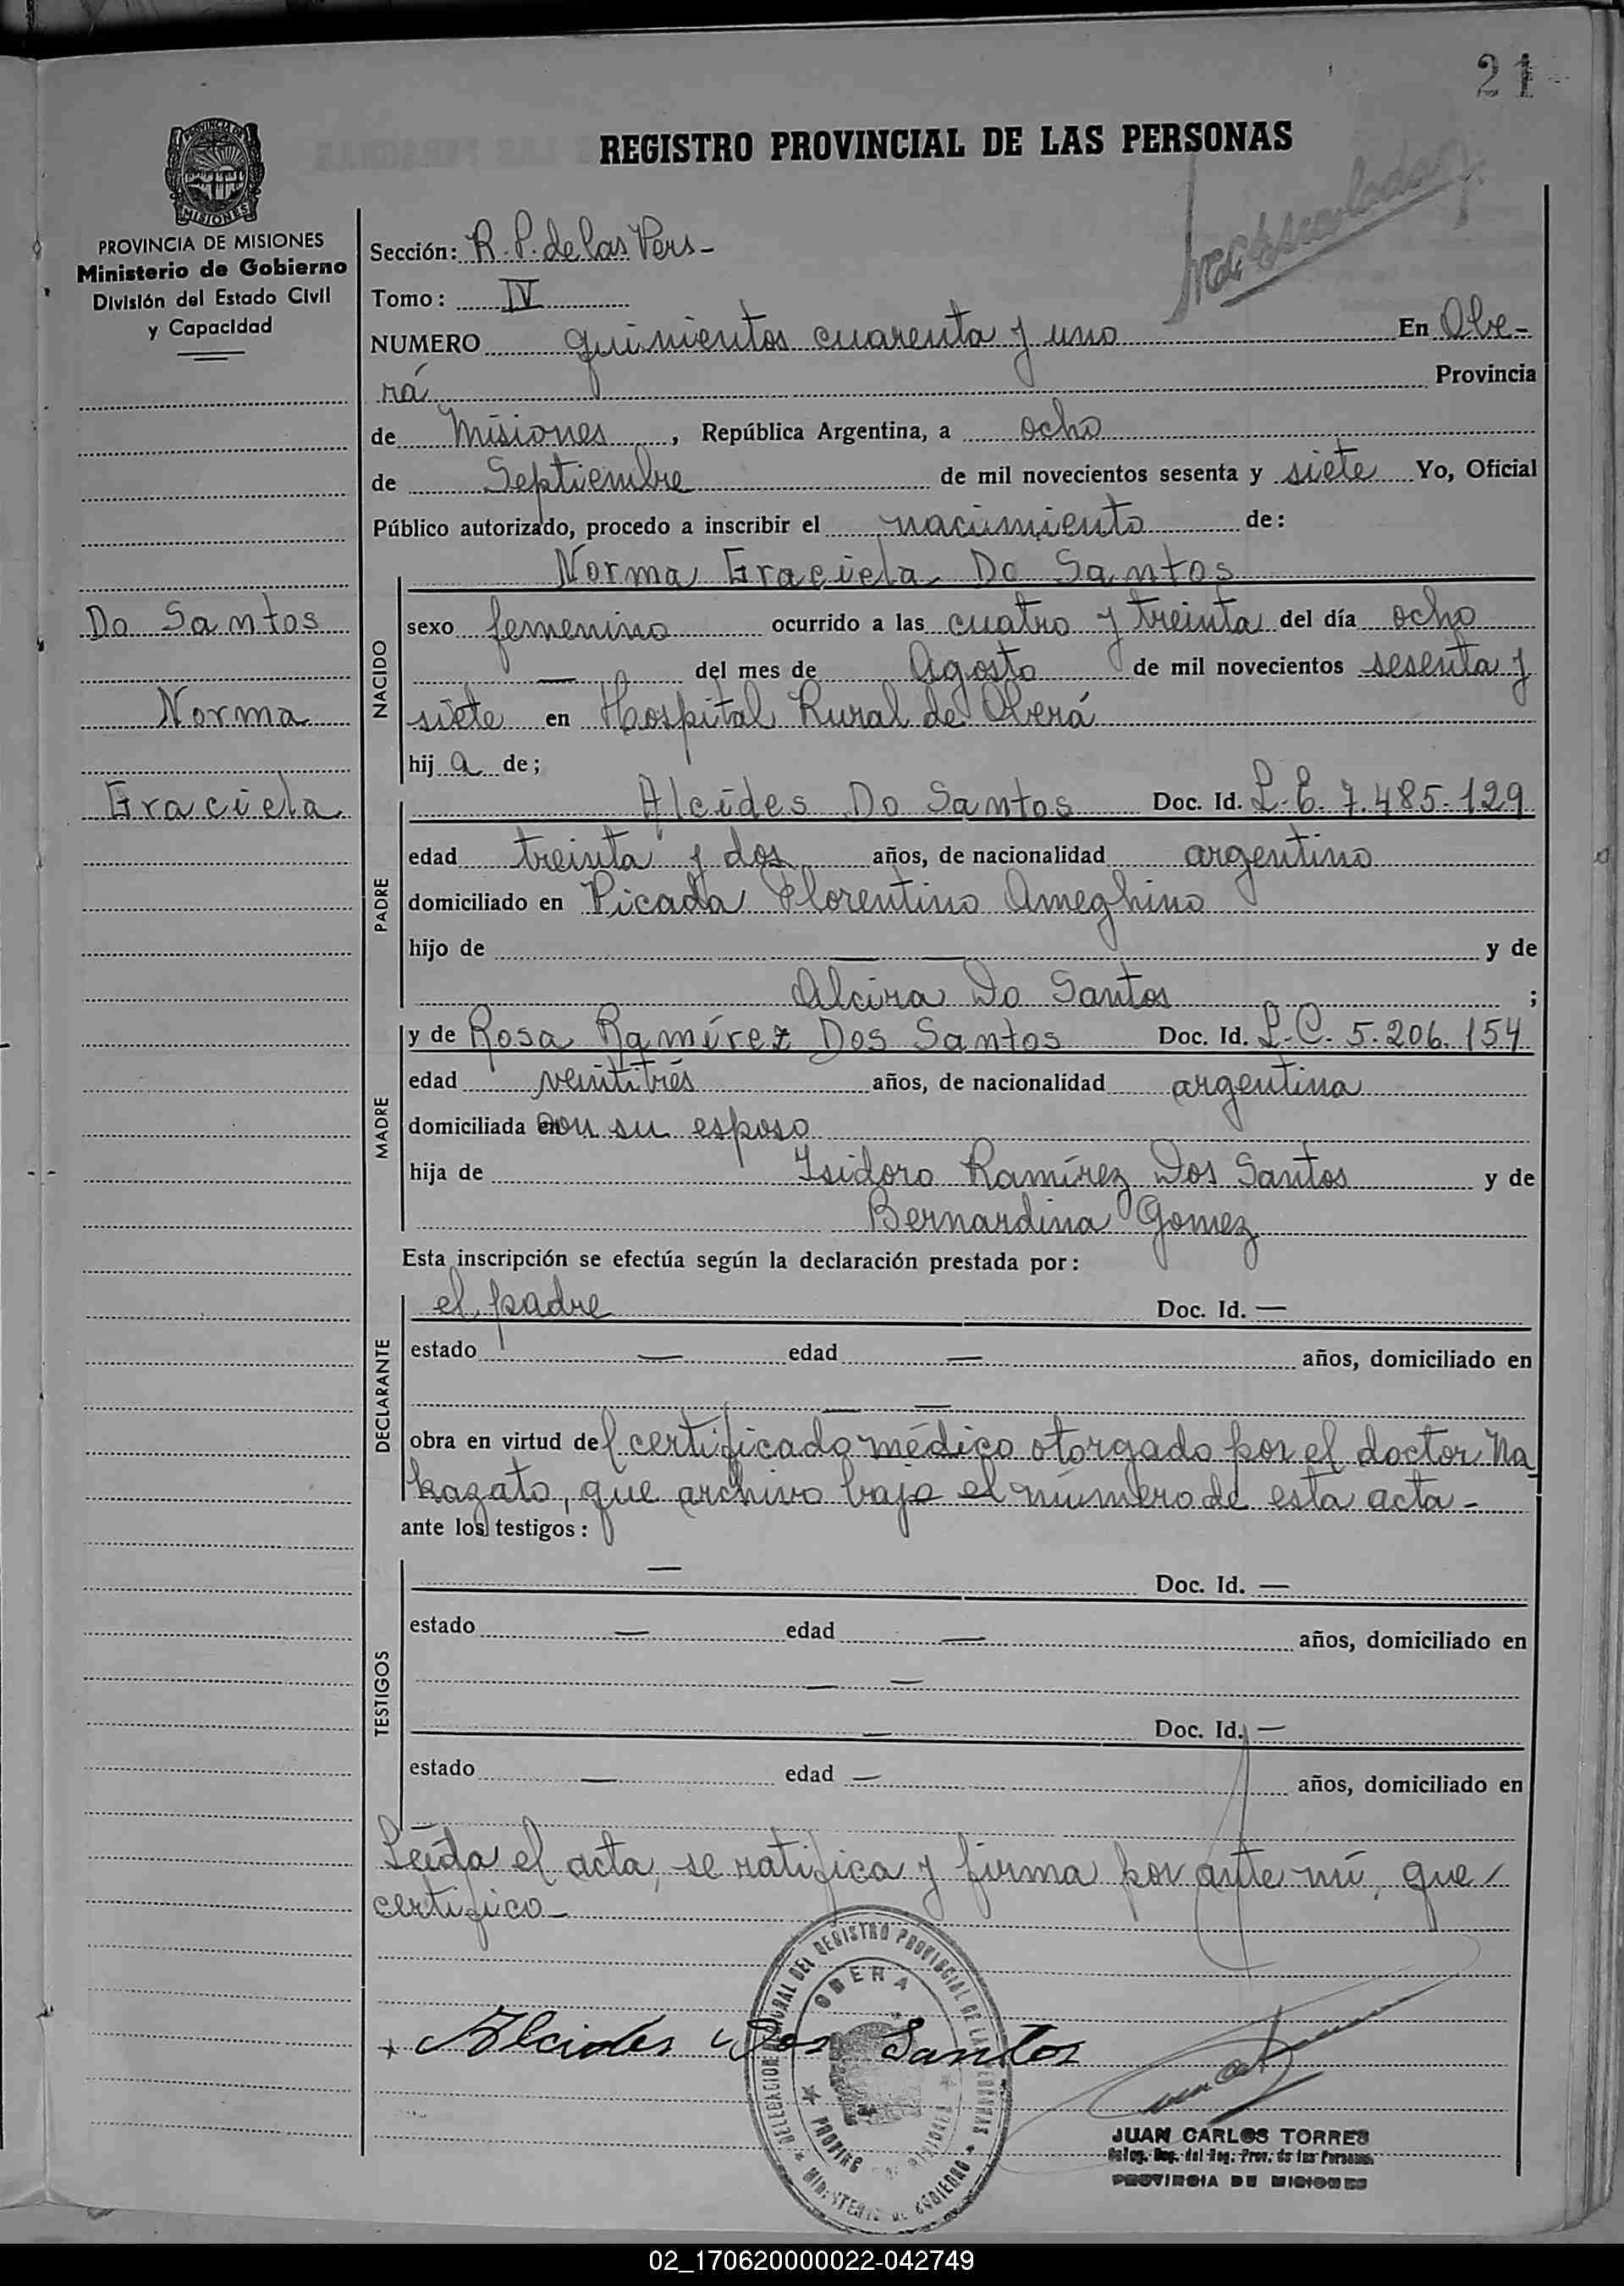 21
REGISTRO PROVINCIAL DE LAS PERSONAS
PROVINCIA DE MISIONES
Ministerio de Gobierno
División del Estado Civil
y Capacidad
Do Santos
Norma
Graciela
Sección: R. P. de las Pers-
Tomo: IV
NUMERO quinientos cuarenta y uno En Obe-
rá Provincia
de Misiones, República Argentina, a ocho
de Septiembre de mil novecientos sesenta y siete Yo, Oficial
Público autorizado, procedo a inscribir el nacimiento de:
Norma Graciela Do Santos
NACIDO
sexo femenino ocurrido a las cuatro y treinta del día ocho
— del mes de Agosto de mil novecientos sesenta y
siete en Hospital Rural de Oberá
hija de;
PADRE
Alcides Do Santos Doc. Id. L. E. 7.485.129
edad treinta y dos años, de nacionalidad argentino
domiciliado en Picada Florentino Ameghino
hijo de — — y de
Alcira Do Santos ;
MADRE
y de Rosa Ramírez Dos Santos Doc. Id. L. C. 5.206.154
edad veintitrés años, de nacionalidad argentina
domiciliada con su esposo
hija de Isidoro Ramírez Dos Santos y de
Bernardina Gomez
Esta inscripción se efectúa según la declaración prestada por:
DECLARANTE
el padre Doc. Id. —
estado — edad — años, domiciliado en
— —
obra en virtud del certificado médico otorgado por el doctor Na
kazato, que archivo bajo el número de esta acta-
ante los testigos:
TESTIGOS
— Doc. Id. —
estado — edad — años, domiciliado en
— —
— Doc. Id. —
estado — edad — años, domiciliado en
Leída el acta, se ratifica y firma por ante mí, que
certifico-
DELEGACION REGIONAL DEL REGISTRO PROVINCIAL DE LAS PERSONAS
OBERA
PROVINCIA DE MISIONES
MINISTERIO DE GOBIERNO
+ Alcides Dos Santos
JUAN CARLOS TORRES
Deleg. Reg. del Reg. Prov. de las Personas
PROVINCIA DE MISIONES
02_170620000022-042749